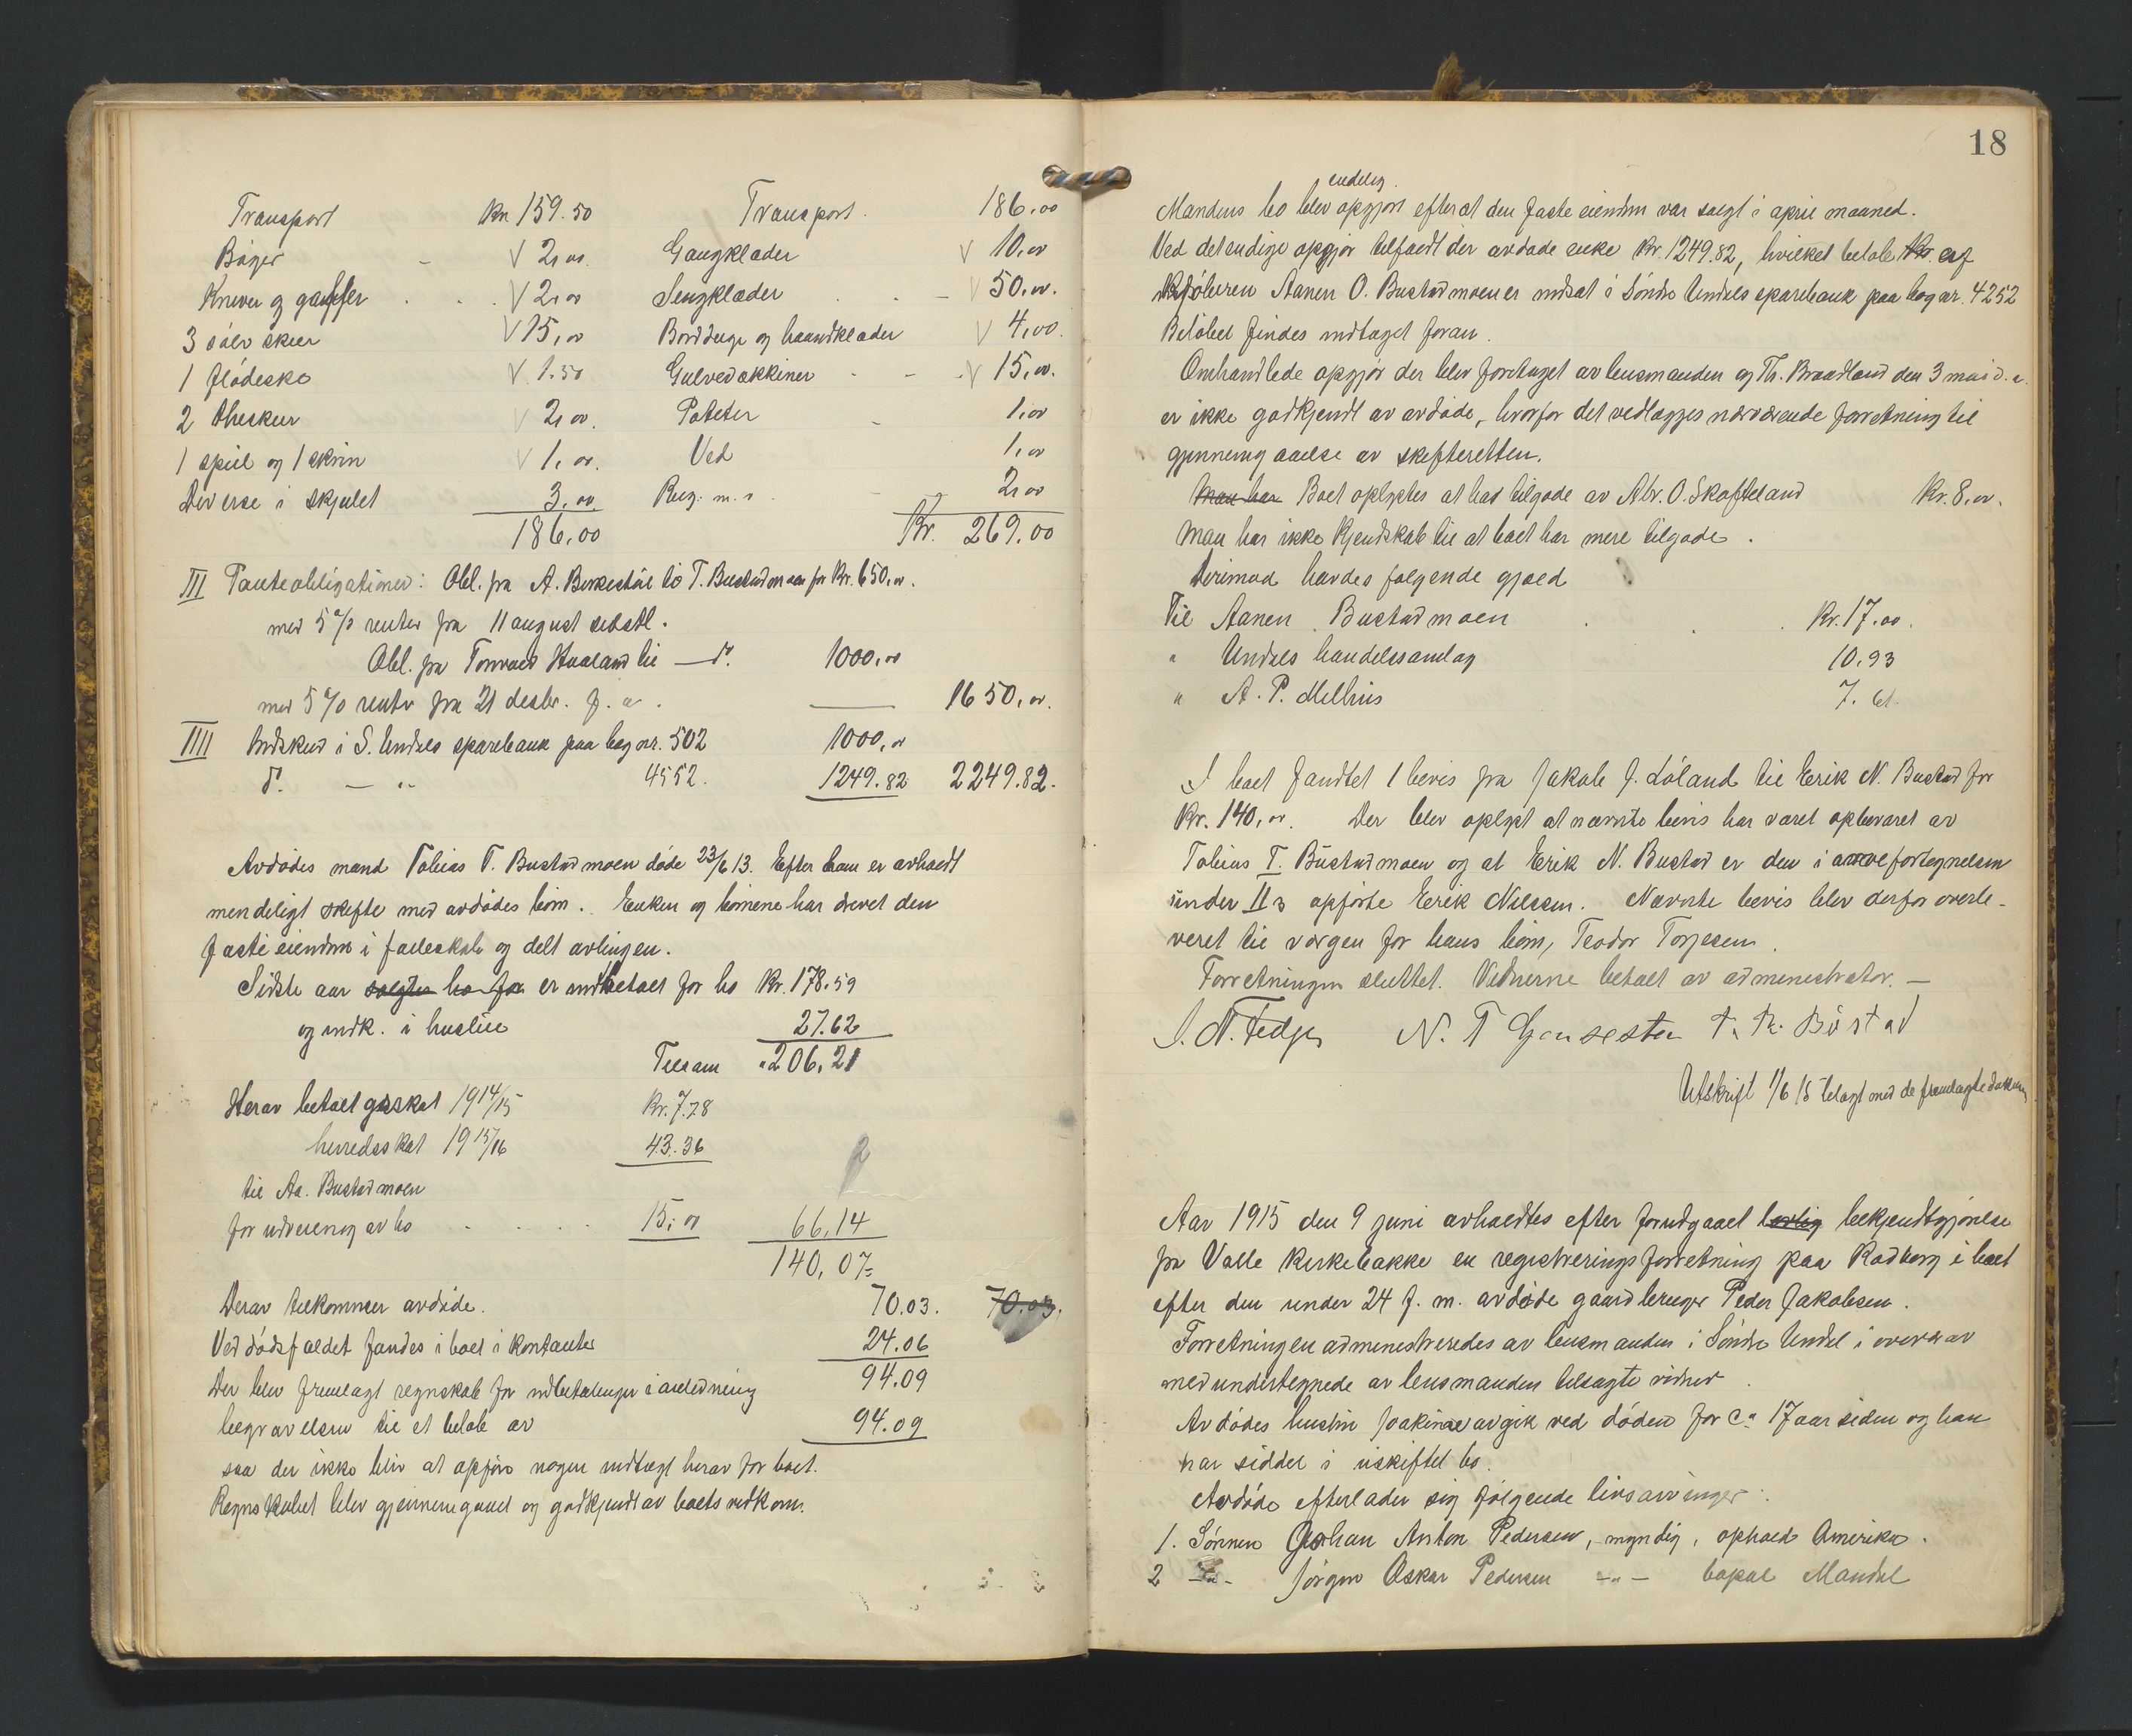 Transport Kr. 159.50
Bøger - V 2,00
Kniver og gafler . . . V 2,00
3 sølvskeer V 15,00
1 flødeske V 1.50
2 theskeer V 2,00
1 speil og 1 skrin V 1,00
Diverse i skjulet 3,00
186,00
Transport 186,00
Gangklæder V 10,00
Sengklæder V 50,00
Borddug og haandklæder V 4,00
Gulvedækkener V 15,00
Poteter 1,00
Ved 1,00
Rug m. v 2,00
Kr. 269.00
III Panteobligationer: Obl. fra A. Birkestøl til T. Bustadmoen for Kr. 650,00.
med 5 % renter fra 11 august sidstl.
Obl. fra Tonvald Haaland til — do. 1000,00
med 5 % rente fra 21 desbr. f. a. — 1650,00.
IIII Indskud i S. Undals sparebank paa bog nr. 502 1000,00
do. — " 4552. 1249.82 2249.82.
Avdødes mand Tobias T. Bustadmoen døde 23/6 13. Efter ham er avholdt
mendeligt skifte med avdødes børn. Enken og børnene har drevet den
faste eiendom i fælleskab og delt avlingen.
Sidste aar solgtes ho for er indbetalt for ho Kr. 178.59
og indk. i huslire 27.62
Tilsam " 206.21
Herav betalt skat 1914/15 Kr. 7.78
herredsskat 1915/16 43.36
til Aa. Bustadmoen
for udveining av ho . . . . 15,00 66,14
140,07=
2
Derav tilkommer avdøde. 70.03. 70.03.
Ved dødsfaldet fandes i boet i kontanter 24.06
Der blev fremlagt regnskab for indbetalinger i anledning 94.09
begravelsen til et beløb av 94.09
saa der ikke blir at opføre nogen indtægt herav for boet.
Regnskabet blev gjennemgaaet og godkjendt av boets vedkom.
18
endelig
Mandens bo blev opgjort efterat den faste eiendom var solgt i april maaned.
Ved det endige opgjør tilfaldt der avdøde enke Kr. 1249.82, hvilket beløb Kr. af
kjøberen Aanen O. Bustadmoen er indsat i Søndre Undals sparebank paa bog nr. 4252
Beløbet findes indtaget foran.
Omhandlede opgjør der blev foretaget av lensmanden og Th. Brandland den 3 mai d. a.
er ikke godkjendt av avdøde, hvorfor det vedlægges nærværende forretning til
gjennemgaaelse av skifteretten.
Man har Boet oplystes at ha tilgode av Abr. O. Skofteland Kr. 8,00.
Man har ikke kjendskab til at boet har mere tilgode.
Derimod havdes følgende gjæld
Til Aanen Bustadmoen . . . Kr. 17.00.
" Undals handelssamlag 10.93
" A. P. Mellius 7. 61
I boet fandtes 1 bevis fra Jakob J. Løland til Erik N. Bustad for
Kr. 140,00. Der blev oplyst at nævnte bevis har været opbevaret av
Tobias T. Bustadmoen og at Erik N. Bustad er den i arvefortegnelsen
under II 3 opførte Erik Nilssen. Nævnte bevis blev derfor overle-
veret til værgen for hans børn, Teodor Torjesen.
Forretningen sluttet. Vidnerne betalt av administrator. —
N. T T. R. Büstad
Utskrift 1/6 15 bilagt med de fremlagte dokum
Aar 1915 den 9 juni avholdtes efter forudgaaet lovlig bekjendtgjørelse
fra Valle kirkebakke en registreringsforretning paa Rødberg i boet
efter den under 24 f. m. avdøde gaardbruger Peder Jakobsen.
Forretningen administreredes av lensmanden i Søndre Undal i overvær
med undertegnede av lensmanden tilsagte vidner.
Avdødes hustru Joakine avgik ved døden for ca 17 aar siden og han
har siddet i uskiftet bo.
Avdøde efterlader sig følgende livsarvinger:
1. Sønnen Johan Anton Pedersen, myndig, ophold Amerika.
2 — " — Jørgen Oskar Pedersen — " — bopæl Mandal